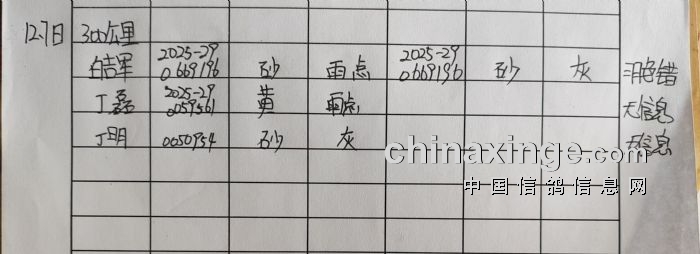 12.7日 300公里
白吉军 2025-29 0669196 砂 雨点 2025-29 0669196 砂 灰 羽色错
丁磊 2025-29 0059561 黄 雨点 无信息
丁明 0050954 砂 灰 无信息
chinaxinge.com
中国信鸽信息网